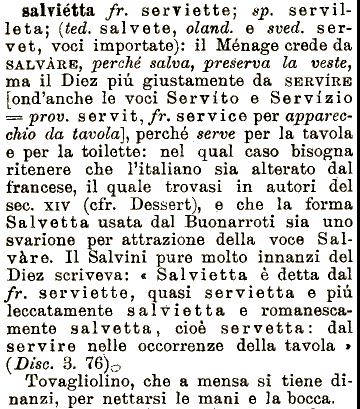 salviétta fr. serviette; sp. servil-
leta; (ted. salvete, oland. e sved. ser-
vet, voci importate): il Ménage crede da
SALVÀRE, perché salva, preserva la veste,
ma il Diez piú giustamente da SERVÍRE
[ond'anche le voci Servíto e Servízio
= prov. servit, fr. service per apparec-
chio da tavola], perché serve per la tavola
e per la toilette: nel qual caso bisogna
ritenere che l'italiano sia alterato dal
francese, il quale trovasi in autori del
sec. XIV (cfr. Dessert), e che la forma
Salvetta usata dal Buonarroti sia uno
svarione per attrazione della voce Sal-
vàre. Il Salvini pure molto innanzi del
Diez scriveva: « Salvietta è detta dal
fr. serviette, quasi servietta e piú
leccatamente salvietta e romanesca-
mente salvetta, cioè servetta: dal
servire nelle occorrenze della tavola »
(Disc. 3. 76).
Tovagliolino, che a mensa si tiene di-
nanzi, per nettarsi le mani e la bocca.